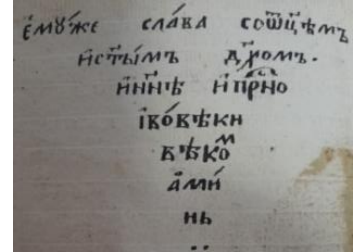 є҆мꙋ́же сла́ва соѻ҆ц҃ѣмъ
и҆ст҃ы́мъ дх҃омъ.
и҆нн҃ѣ и҆прⷭ҇но
і҆во́вѣки
вѣко́ⷨ
а҆ми́
нь